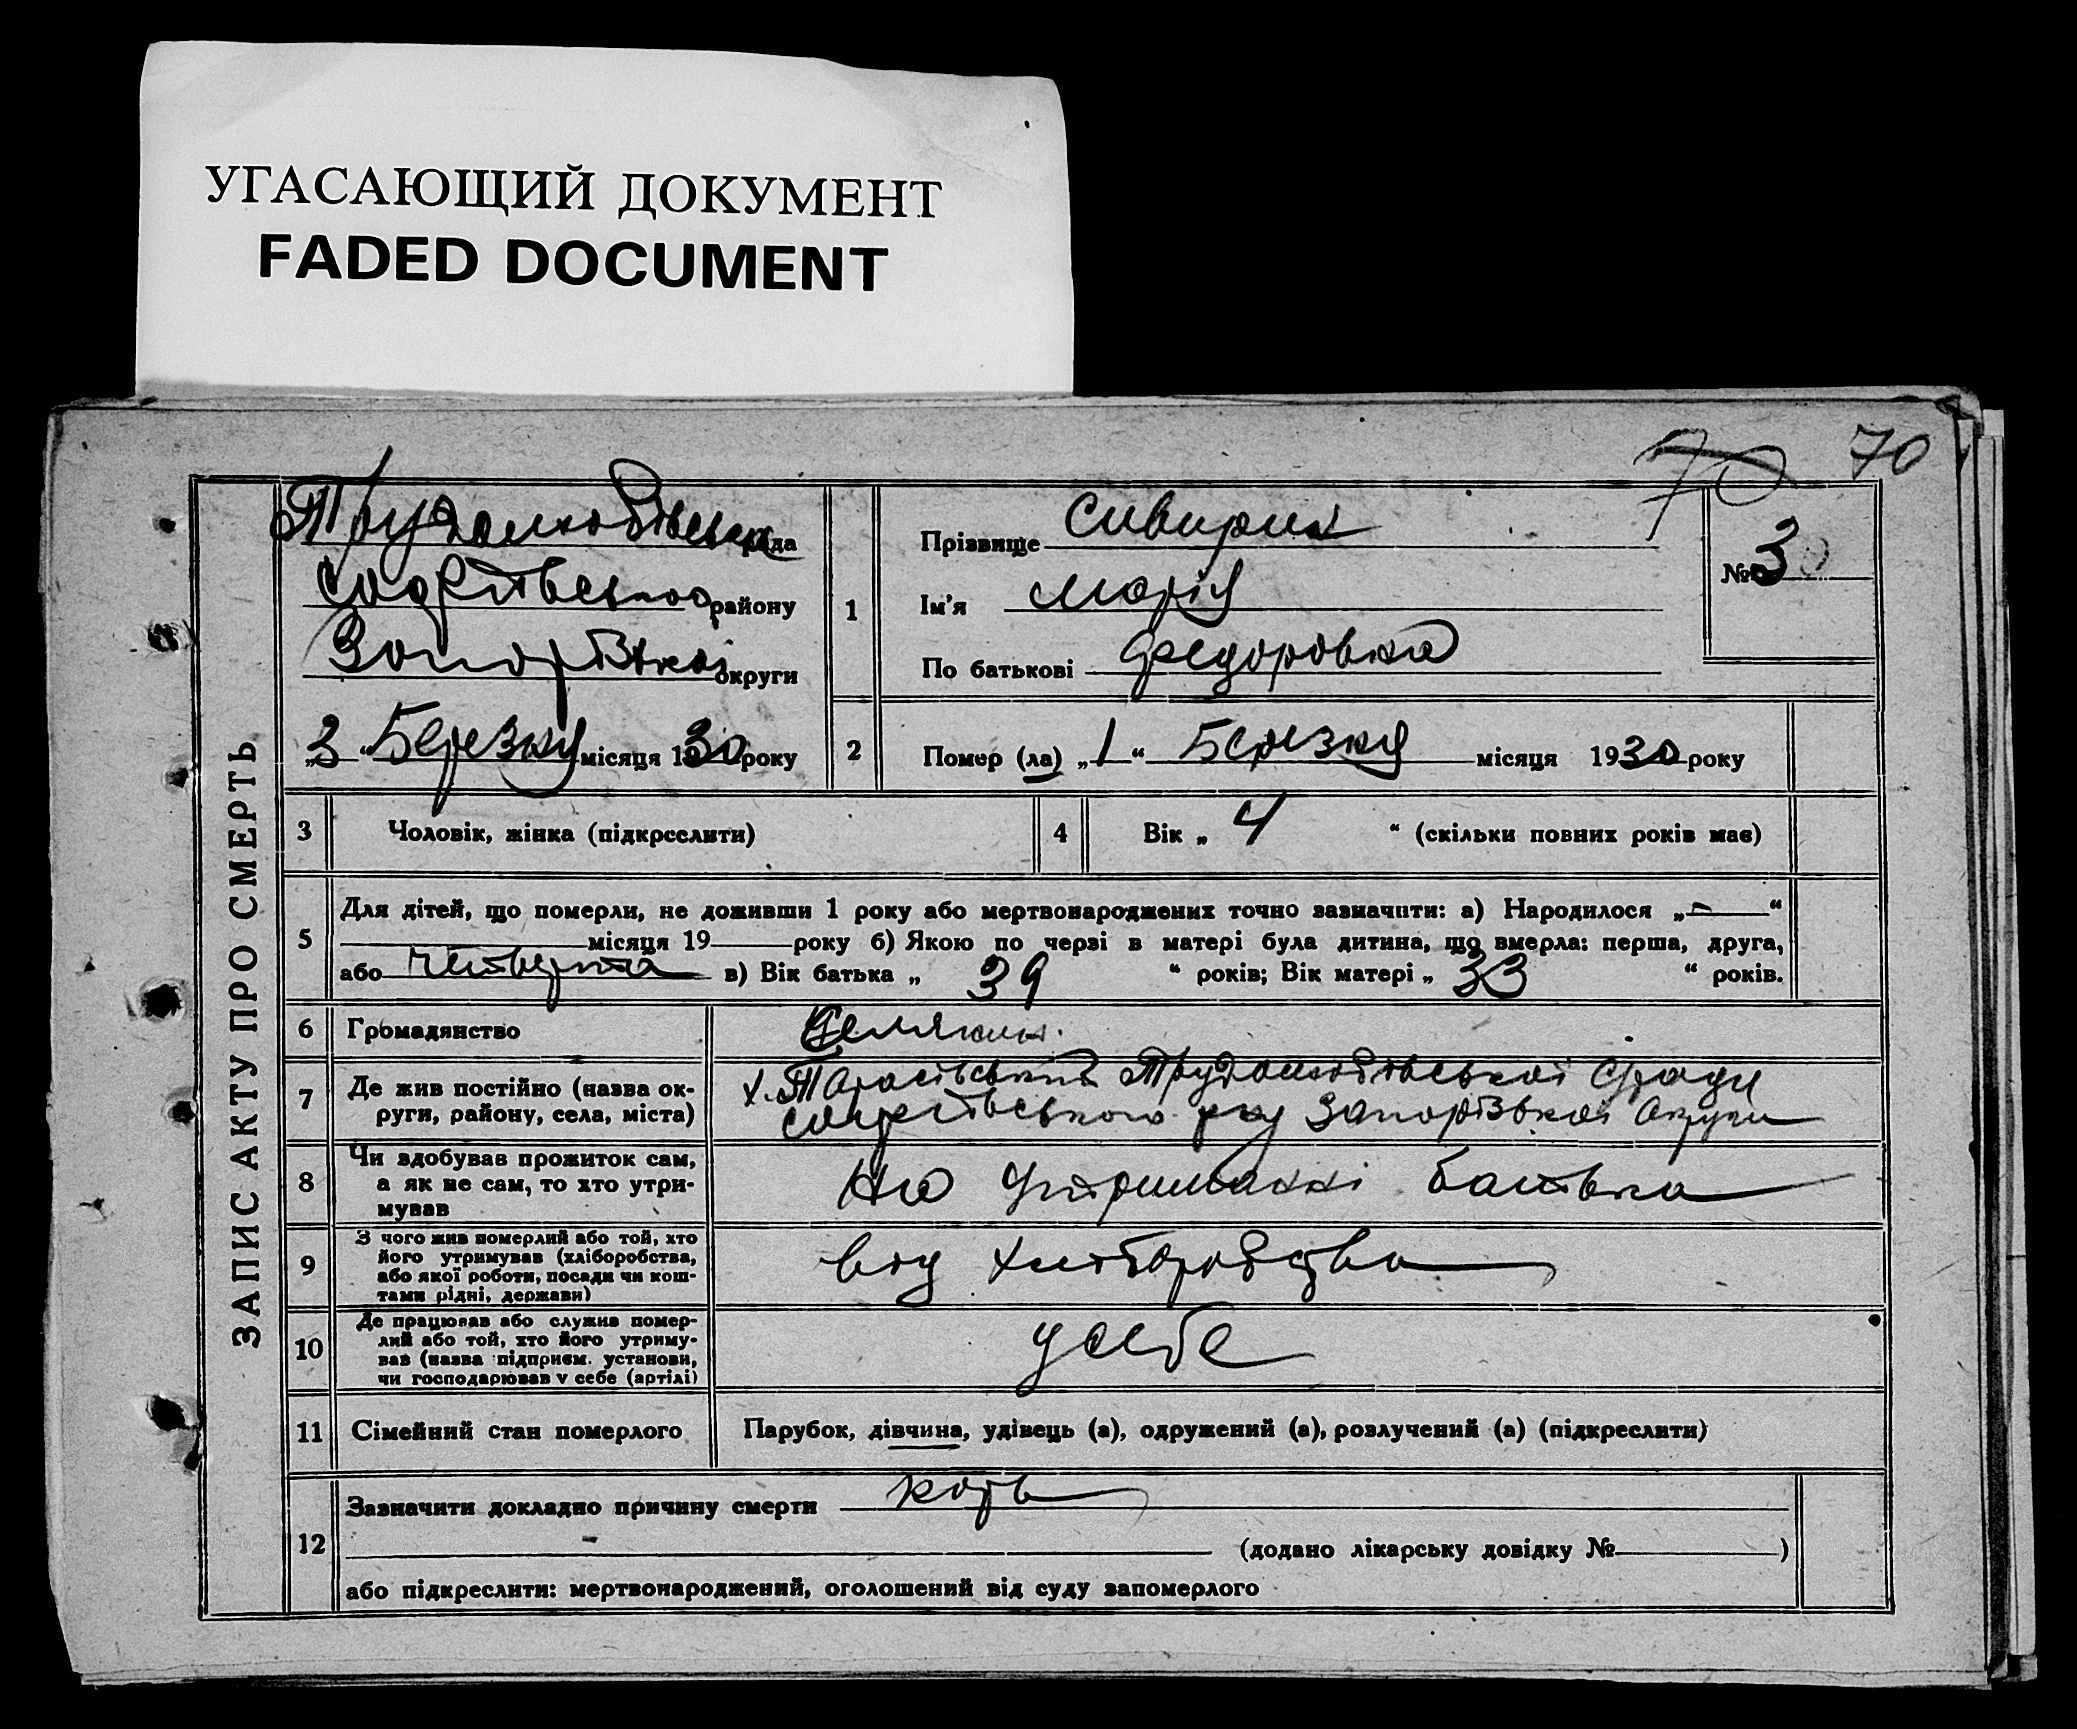 УГАСАЮЩИЙ ДОКУМЕНТ
FADED DOCUMENT
70 70
ЗАПИС АКТУ ПРО СМЕРТЬ
Трудолюбівська рада
району
Запорізької округи
„3“ Березня місяця 1930 року
1
Прізвище Сивирин
Ім’я Марія
По батькові Федоровна
№ 3
2 Помер (ла) „1“ Березня місяця 1930 року
3 Чоловік, жінка (підкреслити)
4 Вік „ 4 “ (скільки повних років мав)
5 Для дітей, що померли, не доживши 1 року або мертвонароджених точно зазначити: а) Народилося „ – “
місяця 19 року б) Якою по черзі в матері була дитина, що вмерла: перша, друга,
або четверта в) Вік батька „ 39 “ років; Вік матері „ 33 “ років.
6 Громадянство Селянин.
7 Де жив постійно (назва ок-
руги, району, села, міста)
х. Тарасівський Трудолюбівської
Запорізької округи
8 Чи здобував прожиток сам,
а як не сам, то хто утри-
мував
На утриманні батька
9 З чого жив померлий або той, хто
його утримував (хліборобства,
або якої роботи, посади чи кош-
тами рідні, держави)
від хліборобства
10 Де працював або служив помер-
лий або той, хто його утриму-
вав (назва підприєм. установи,
чи господарював у себе (артілі)
у себе
11 Сімейний стан померлого Парубок, дівчина, удівець (а), одружений (а), розлучений (а) (підкреслити)
12 Зазначити докладно причину смерти корь
(додано лікарську довідку № )
або підкреслити: мертвонароджений, оголошений від суду запомерлого